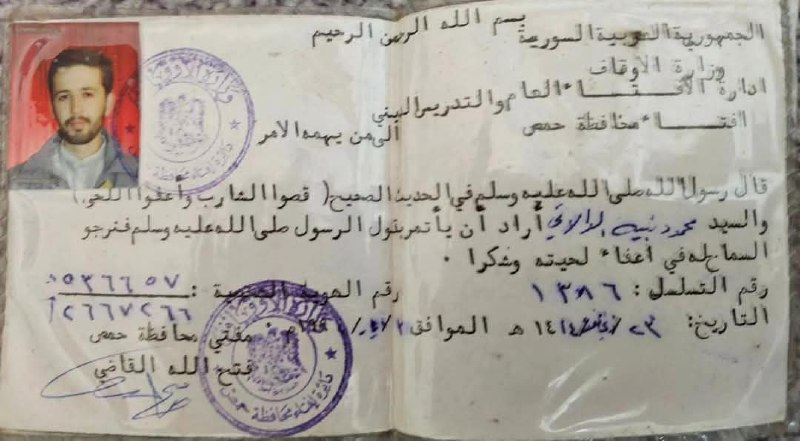 بسم الله الرحمن الرحيم
الجمهورية العربية السورية
وزارة الأوقاف
ادارة الافتاء العام والتدريس الديني
افتاء محافظة حمص
الى من يهمه الامر
قال رسول الله صلى الله عليه وسلم في الحديث الصحيح ( قصوا الشارب وأعفوا اللحى )
والسيد محمود نبيه الدالاتي أراد أن يأتمر بقول الرسول صلى الله عليه وسلم فنرجو
السماح له في أعفاء لحيته وشكرا .
رقم التسلسل : ١٣٨٦ رقم الهوية الشخصية : ٥٣٦٦٥٧
التاريخ: ٢٣ / ١٤١٤ هـ الموافق
مفتي محافظة حمص
فتح الله القاضي
وزارة الأوقاف
دائرة افتاء محافظة حمص